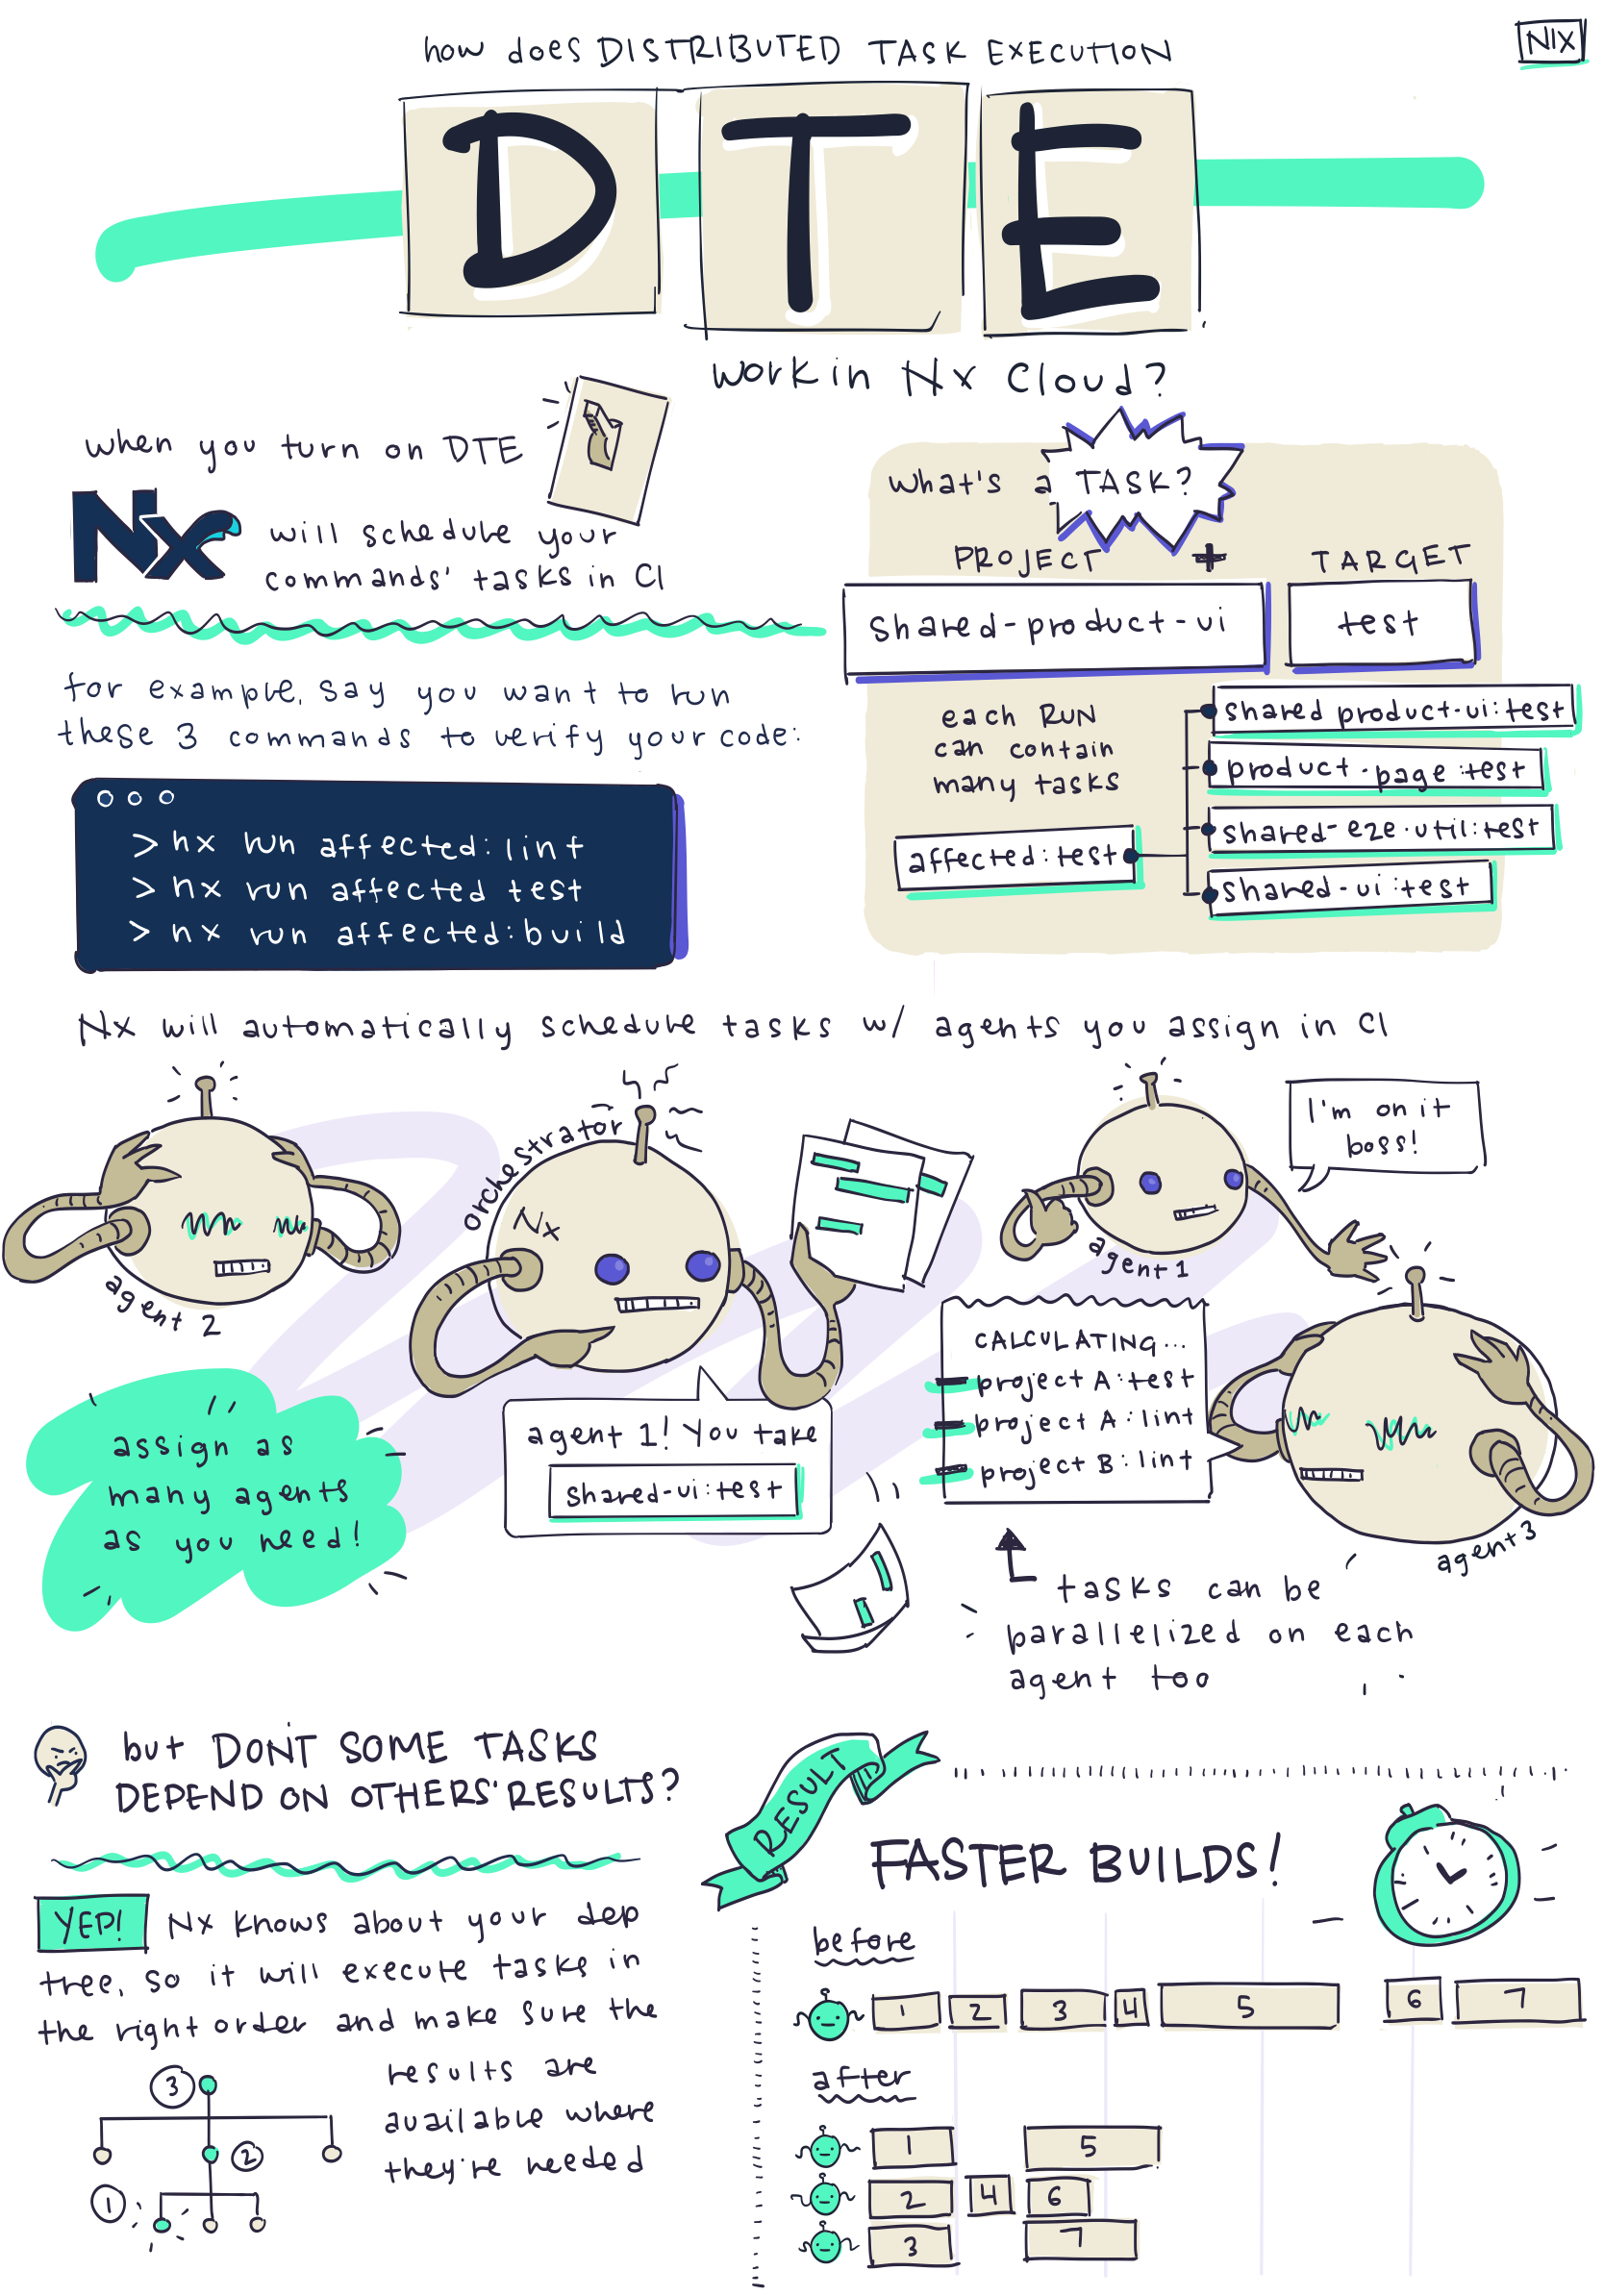 how does DISTRIBUTED TASK EXECUTION
NIX
DTE
work in Nx Cloud?
when you turn on DTE
Nx will schedule your
commands' tasks in CI
for example, say you want to run
these 3 commands to verify your code:
> nx run affected:lint
> nx run affected test
> nx run affected:build
what's a TASK?
PROJECT + TARGET
shared-product-ui test
each RUN
can contain
many tasks
affected:test
shared product-ui:test
product-page:test
shared-e2e-util:test
shared-ui:test
Nx will automatically schedule tasks w/ agents you assign in CI
agent 2
orchestrator
Nx
agent 1
I'm on it
boss!
agent 1! You take
shared-ui:test
CALCULATING...
project A:test
project A:lint
project B:lint
agent 3
assign as
many agents
as you need!
tasks can be
parallelized on each
agent too
but DON'T SOME TASKS
DEPEND ON OTHERS' RESULTS?
YEP! Nx knows about your dep
tree, so it will execute tasks in
the right order and make sure the
results are
available where
they're needed
3
2
1
RESULT
FASTER BUILDS!
before
1 2 3 4 5 6 7
after
1 5
2 4 6
3 7